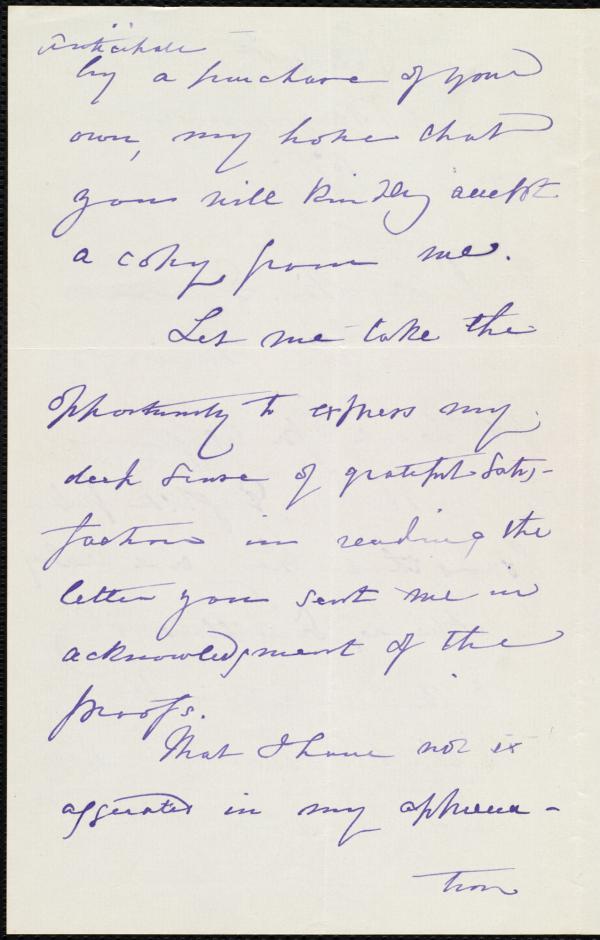 anticipate
by a purchase of your
own, my hope that
you will kindly accept
a copy from me.
Let me take the
opportunity to express my
deep sense of grateful satis-
faction in reading the
letter you sent me in
acknowledgment of the
proofs.
That I have not ex
aggerated in my apprecia-
tion